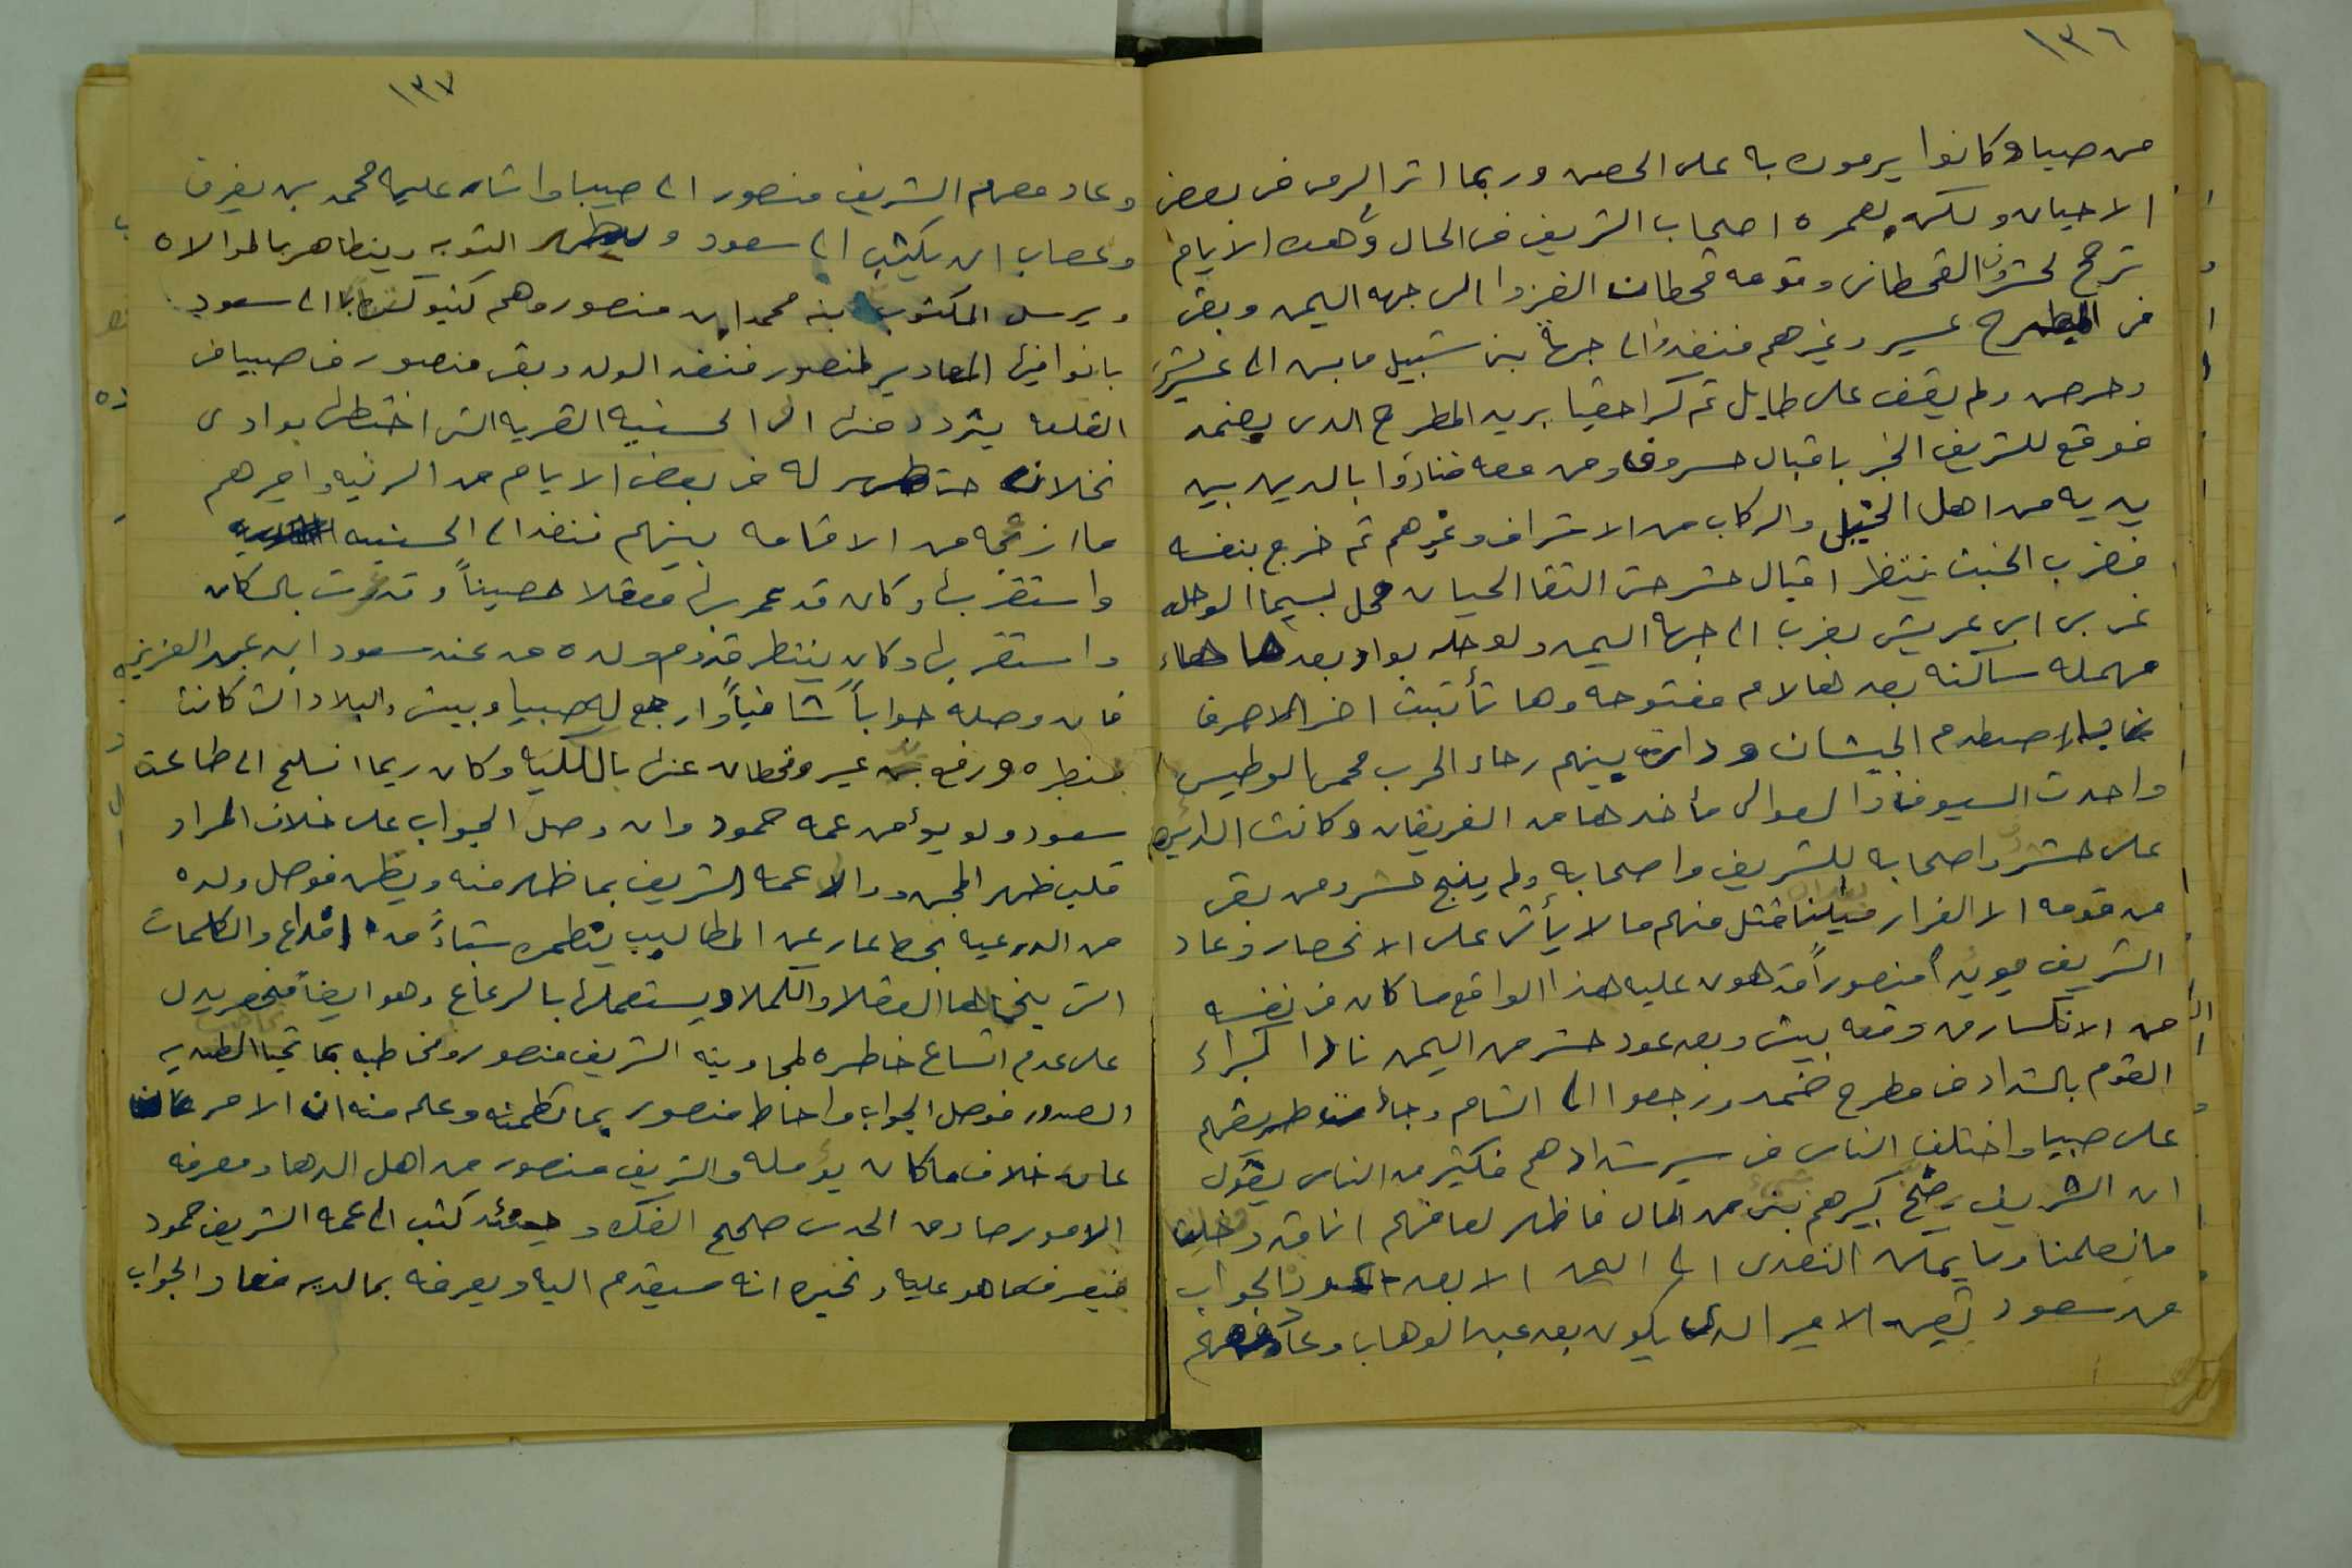 ١٣٦
من صبيا وكانوا يرمون به على الحصن وربما اثر الرمى فى بعض
الاحيان ولكن يعمره اصحاب الشريف فى الحال وهذه الايام
ترجح لحشر القحطانى وقومه قحطان الغزوا الى جهه اليمن وبقى
فى المطرح عسير وغيرهم فنفذوا الى جهة بنى شبيل مابين ابى عريش
وحرض ولم يقف على طايل ثم كر احقيا يريد المطرح الدى بضمد
فوقع للشريف الخبر باقبال ومن معه فنادوا بالدين بين
يديه من اهل الخيل والركاب من الاشراف وغيرهم ثم خرج بنفسه
فضرب الخبت ينتظر اقبال حشر حتى التقا الحيان محل يسما الوحله
غربى ابى عريش يغرب الى جهة اليمن ولوحله بواو بعدها حاء
مهمله ساكنه بعدها لام مفتوحه وها تأنيث اخر الاحرف
اصطدم الجيشان ودارت بينهم رحاء الحرب محمى الوطيس
واخدت السيوف والعوالى مأخدها من الفريقان وكانت الدايره
على حشر واصحابه للشريف واصحابه ولم ينج حشر ومن بقى
من قومه الا الفرار بعد ان قتل منهم ما لا يأتى على الانحصار وعاد
الشريف مويداً منصوراً قد هون عليه هذا الواقع ما كان فى نفسه
من الانكسار من وقعه بيش وبعد عود حشر من اليمن نادا كبراء
القوم بالشداد فى مطرح ضمد ورجعوا الى الشام وجاء طريقهم
على صبيا واختلف الناس فى سير شدادهم فكثير من الناس يقول
ان الشريف رضخ كبيرهم بشى من المال فاظهر لعامتهم انا قد دخلنا
وما يمكن التعدى الى اليمن الا بعد الجواب
من سعود بتعين الامير الدى يكون بعد عبد الوهاب وعاد
١٣٧
وعاد معهم الشريف منصور الى صبيا واشار عليه محمد بن يغرق
وعصاب ان يكتب الى سعود ويظهر التوبه ويتظاهر بالموالاه
ويرسل المكتوب ابنه محمد ابن منصور وهم كتبو كتابا الى سعود
بانوا فيها المعادير لمنصور فنفد الولد وبقى منصور فى صبيا فى
القلعه يتردد منها الى الحسنيه القريه التى اختطها بوادى
نخلان حتى ظهر له فى بعض الايام من الرنيه واميرهم
ما ازعجه من الاقامه بينهم فنفد الى الحسنيه
واستقر بها وكان قد عمر بها معقلا حصيناً وقد بالسكان
واستقر بها وكان ينتظر قدوم ولده من عند سعود ابن عبد العزيز
فان وصله جواباً شافياً وارجع له صبيا وبيش والبلاد التى كانت
بنظره ورفع يد عسير وقحطان عنها بالكليه وكان ريما انسلخ الى طاعة
سعود ولو يؤمن عمه حمود وان وصل الجواب على خلاف المراد
قلب ظهر المجن ووالا عمه الشريف بما ظهر منه ويظن فوصل ولده
من الدرعيه بخط عار عن المطاليب ينظمن شتاءً من اقداع والكلمات
التى ينخالها العقلا والكملا ويستعملها بالرعاع وهو ايضاً فمخصر يدل
على عدم اتساع خاطره لمجاوبته الشريف منصور ومخاطبه بما
الصدور فوصل الجواب واحاط منصور بما تظمنه وعلم منه ان الامر
على خلاف ما كان يؤمله والشريف منصور من اهل الدها ومعرفه
الامور صادق الحدس صحيح الفكر وحينئد كتب الى عمه الشريف حمود
فيعرف ما هو عليه ونخبره انه سيقدم اليه ويعرفه بما لديه فعاد الجواب